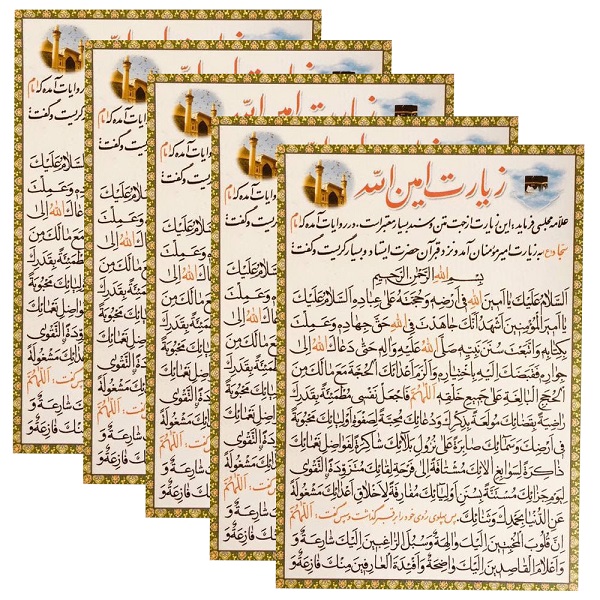 زیارت امین الله
علامه مجلسی فرماید؛ این زیارت از جهت متن و سند بسیار معتبر است. در روایات آمده که امام
سجاد(ع) به زیارت امیرمؤمنان آمد و نزد قبر آن حضرت ایستاد و بسیار گریست و گفت:
بِسْمِ اللهِ الرَّحْمٰنِ الرَّحِیمِ
اَلسَّلامُ عَلَیْکَ یا اَمینَ اللهِ فی اَرْضِهِ وَ حُجَّتَهُ عَلی عِبادِهِ اَلسَّلامُ عَلَیْکَ
یا اَمیرَ الْمُؤْمِنینَ اَشْهَدُ اَنَّکَ جاهَدْتَ فِی اللهِ حَقَّ جِهادِهِ وَ عَمِلْتَ
بِکِتابِهِ وَ اتَّبَعْتَ سُنَنَ نَبِیِّهِ صَلَّی اللهُ عَلَیْهِ وَ الِهِ حَتّی دَعاکَ اللهُ اِلی
جِوارِهِ فَقَبَضَکَ اِلَیْهِ بِاخْتِیارِهِ وَ اَلْزَمَ اَعْدائَکَ الْحُجَّةَ مَعَ مالَکَ مِنَ
الْحُجَجِ الْبالِغَةِ عَلی جَمیعِ خَلْقِهِ اَللّهُمَّ فَاجْعَلْ نَفْسی مُطْمَئِنَّةً بِقَدَرِکَ
راضِیَةً بِقَضائِکَ مُولَعَةً بِذِکْرِکَ وَ دُعائِکَ مُحِبَّةً لِصَفْوَةِ اَوْلِیائِکَ مَحْبُوبَةً
فی اَرْضِکَ وَ سَمائِکَ صابِرَةً عَلی نُزُولِ بَلائِکَ شاکِرَةً لِفَواضِلِ نَعْمائِکَ
ذاکِرَةً لِسَوابِغِ الائِکَ مُشْتاقَةً اِلی فَرْحَةِ لِقائِکَ مُتَزَوِّدَةً التَّقْوی
لِیَوْمِ جَزائِکَ مُسْتَنَّةً بِسُنَنِ اَوْلِیائِکَ مُفارِقَةً لِاَخْلاقِ اَعْدائِکَ مَشْغُولَةً
عَنِ الدُّنْیا بِحَمْدِکَ وَ ثَنائِکَ. پس پهلوی روی خود را بر قبر گذاشت و می گفت: اَللّهُمَّ
اِنَّ قُلُوبَ الْمُخْبِتینَ اِلَیْکَ والِهَةٌ وَ سُبُلَ الرّاغِبینَ اِلَیْکَ شارِعَةٌ وَ
وَ اَعْلامَ الْقاصِدینَ اِلَیْکَ واضِحَةٌ وَ اَفْئِدَةَ الْعارِفینَ مِنْکَ فازِعَةٌ وَ